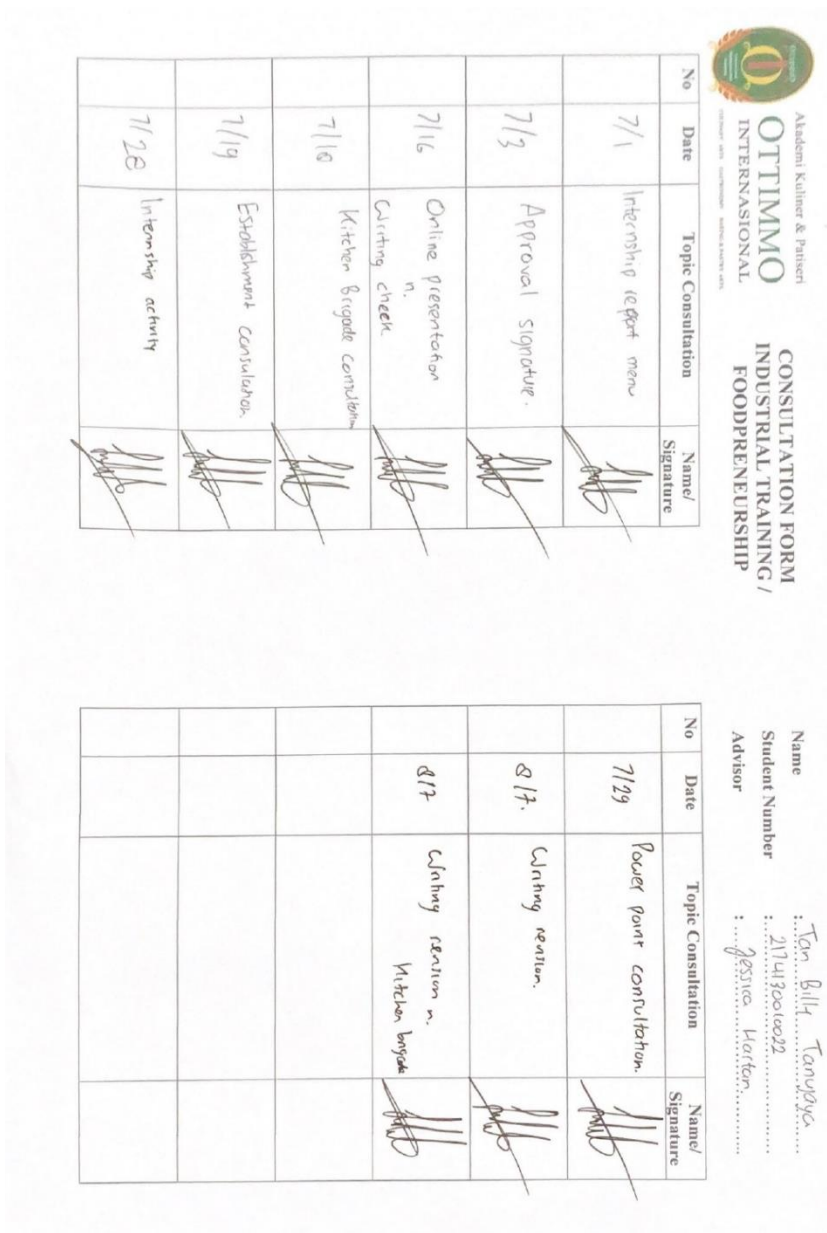 Akademi Kuliner & Patiseri
OTTIMMO
INTERNASIONAL
CONSULTATION FORM
INDUSTRIAL TRAINING /
FOODPRENEURSHIP
Name : Tan Billy Tanujaya
Student Number : 2174130010022
Advisor : Jessica Hartan
No Date Topic Consultation Name/
Signature
7/1 Internship report menu
7/3 Approval signature.
7/16 Online presentation
n.
Writing check
7/18 Kitchen Brigade consultation
7/19 Establishment consulation.
7/28 Internship activity
No Date Topic Consultation Name/
Signature
7/29 Power point consultation.
8/7. Writing revision.
8/7 Writing revision n.
Kitchen brigade